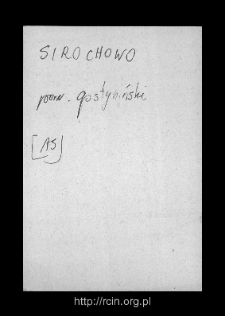 SIROCHOWO
pow. gostyniński
[AS]
http://rcin.org.pl